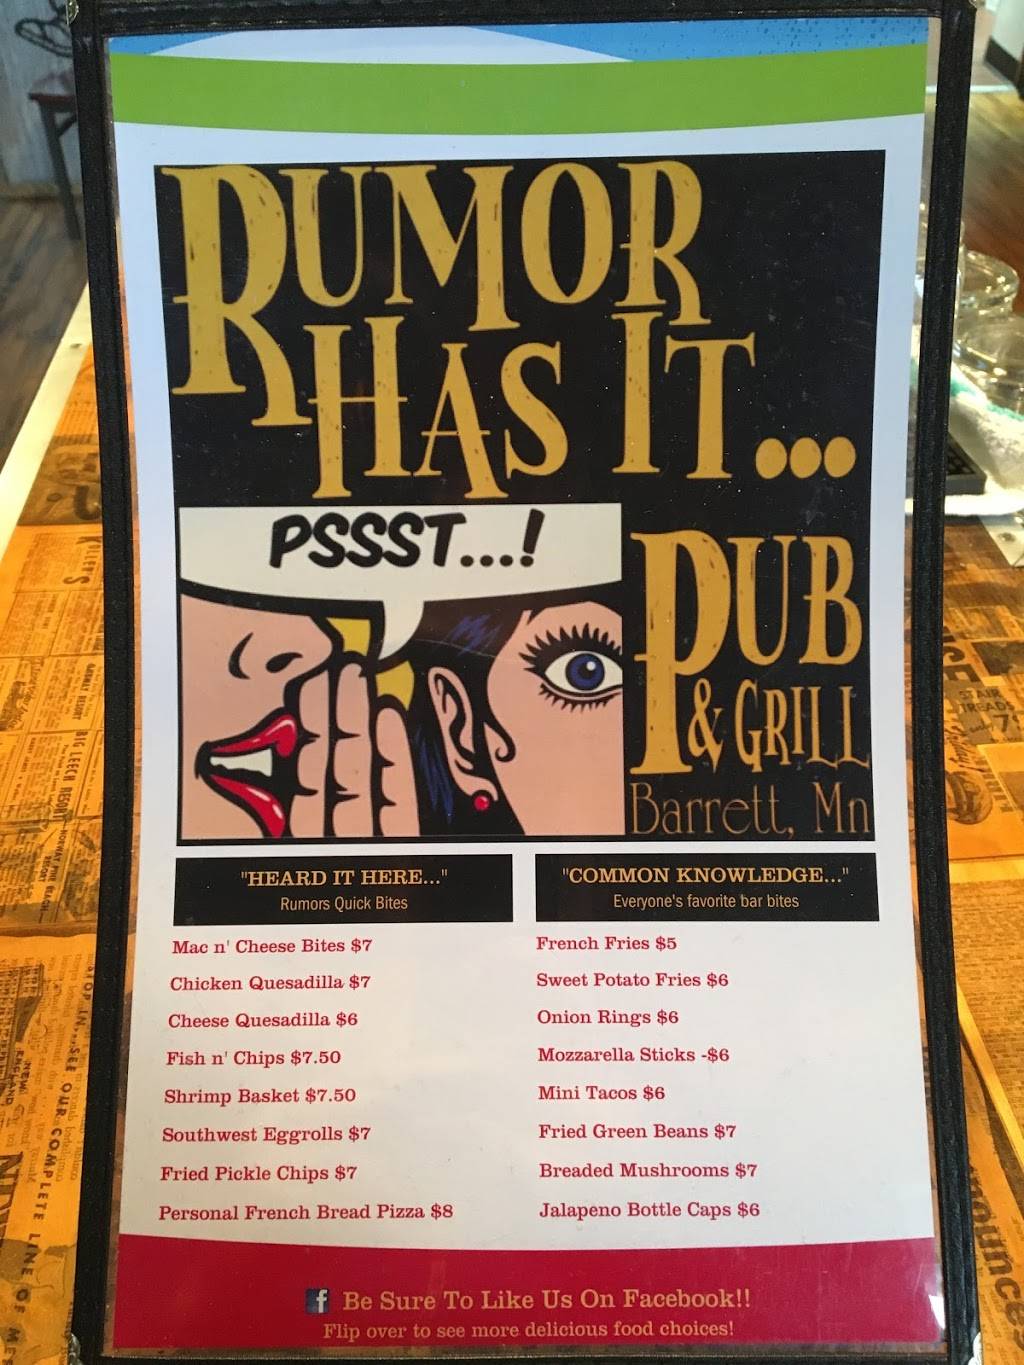 RUMOR
HAS IT...
PSSST...!
PUB
& GRILL
Barrett, Mn
"HEARD IT HERE..."
Rumors Quick Bites
Mac n' Cheese Bites $7
Chicken Quesadilla $7
Cheese Quesadilla $6
Fish n' Chips $7.50
Shrimp Basket $7.50
Southwest Eggrolls $7
Fried Pickle Chips $7
Personal French Bread Pizza $8
"COMMON KNOWLEDGE..."
Everyone's favorite bar bites
French Fries $5
Sweet Potato Fries $6
Onion Rings $6
Mozzarella Sticks -$6
Mini Tacos $6
Fried Green Beans $7
Breaded Mushrooms $7
Jalapeno Bottle Caps $6
f Be Sure To Like Us On Facebook!!
Flip over to see more delicious food choices!
BIG LEECH RESORT
STAIR
TREADS
SEE OUR COMPLETE LINE OF